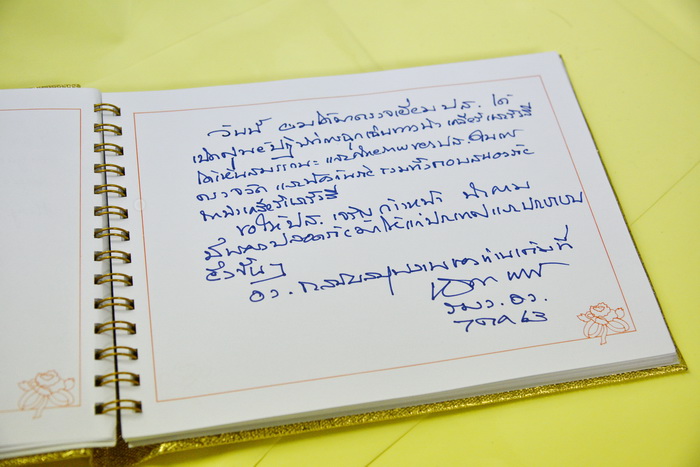 วันนี้ ผมได้มาตรวจเยี่ยม ปส. ได้
เปิดศูนย์ปฏิบัติการฉุกเฉินทางนิวเคลียร์และรังสี
ได้เห็นสมรรถนะ และศักยภาพของ ปส. ในการ
ตรวจวัด และป้องกันภัย รวมทั้งตอบสนองภัย
ทางนิวเคลียร์และรังสี
ขอให้ ปส. เจริญ ก้าวหน้า นำความ
มั่นคงปลอดภัย มาให้แก่ประเทศและประชาชน
ยิ่งขึ้นๆ
อว. สนับสนุนงานของท่านเต็มที่
รมว. อว.
7 ตค 63